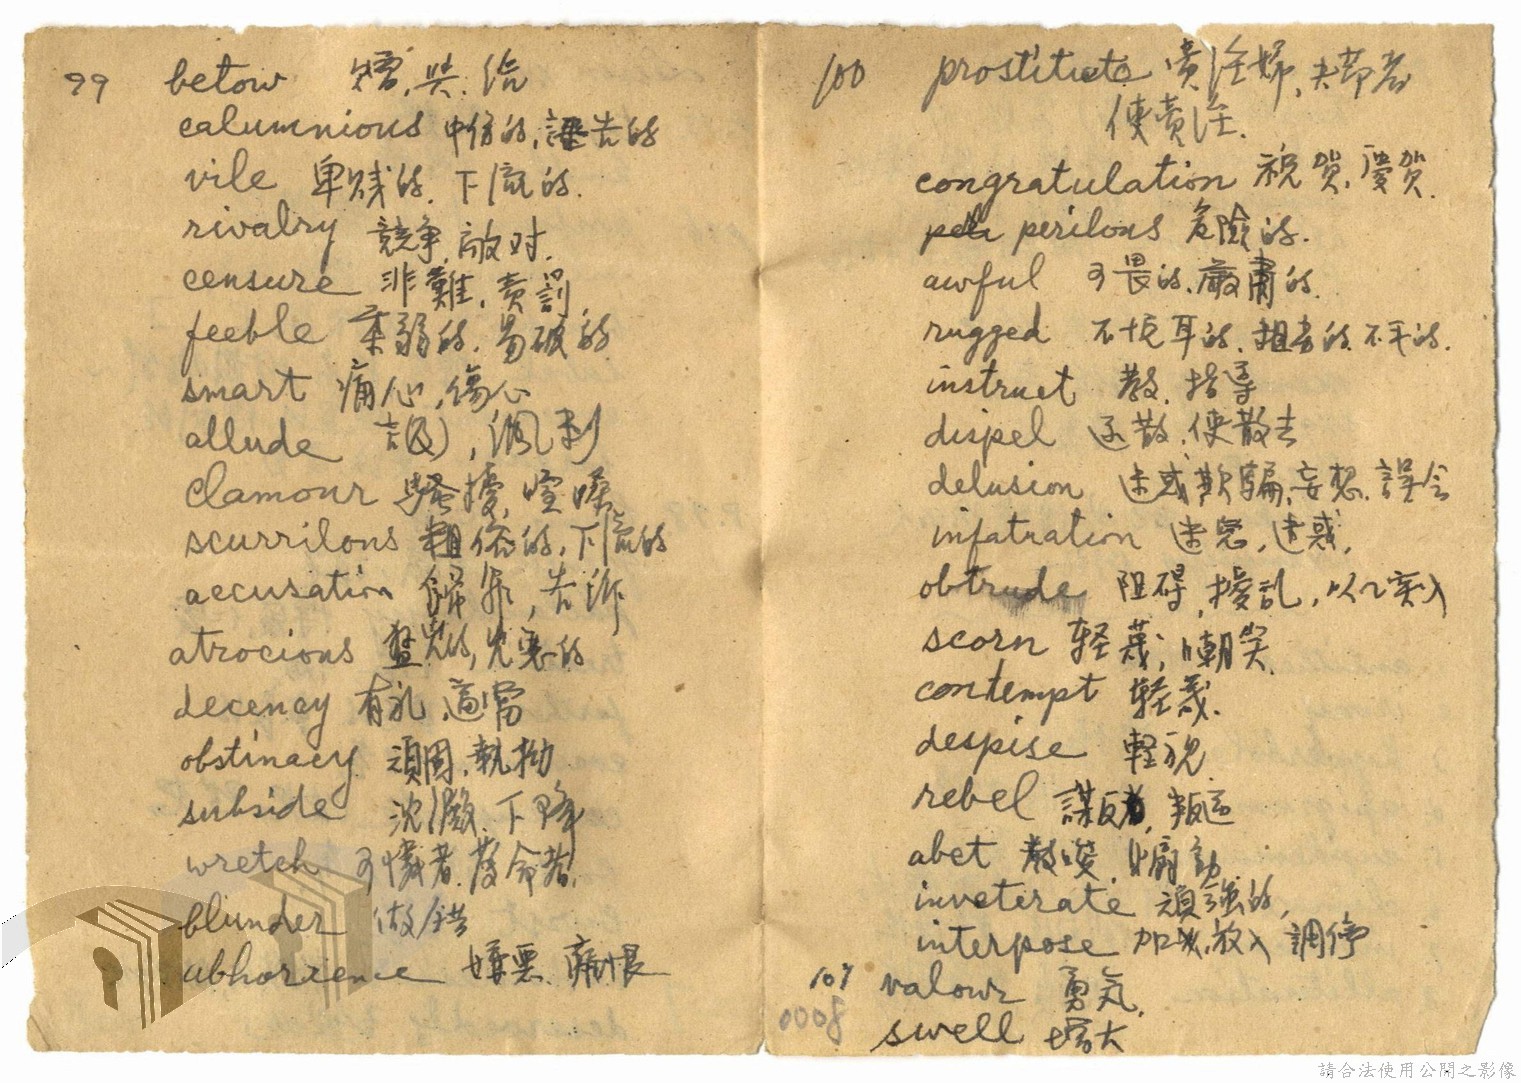 99 betow 贈,與.給
calumnious 中伤的,誣告的
vile 卑贱的.下流的.
rivalry 競争,敵对.
censure 非難,責罰
feeble 柔弱的.易破的
smart 痛心,傷心
allude 言及,諷刺
clamour 騷擾,喧嘩
scurrilons 粗俗的,下流的
accusation 罪,告诉
atrocions 的,兇惡的
decency 有礼,適當
obstinacy 頑固,執拗
subside 沈澱.下降
wretch 可憐者.薄命者.
blunder 做错
abhorrence 嫌悪.痛恨
100 prostitute 賣淫婦,失節者
使賣淫.
congratulation 祝賀,慶賀.
perilous 危險的.
awful 可畏的,嚴肅的.
rugged 不悅耳的.粗的.不平的.
instruct 教.指导
dispel 逐散,使散去
delusion 迷或欺騙,妄想.誤会
infatration 迷惑.
obtrude 阻碍,擾乱,突入
scorn 軽蔑,嘲笑.
contempt 軽蔑.
despise 輕視
rebel 謀反者,叛逆
abet 教唆,煽動
inveterate 頑強的,
interpose 加入.放入 調停
101 valour 勇氣.
swell 增大
0008
請合法使用公開之影像